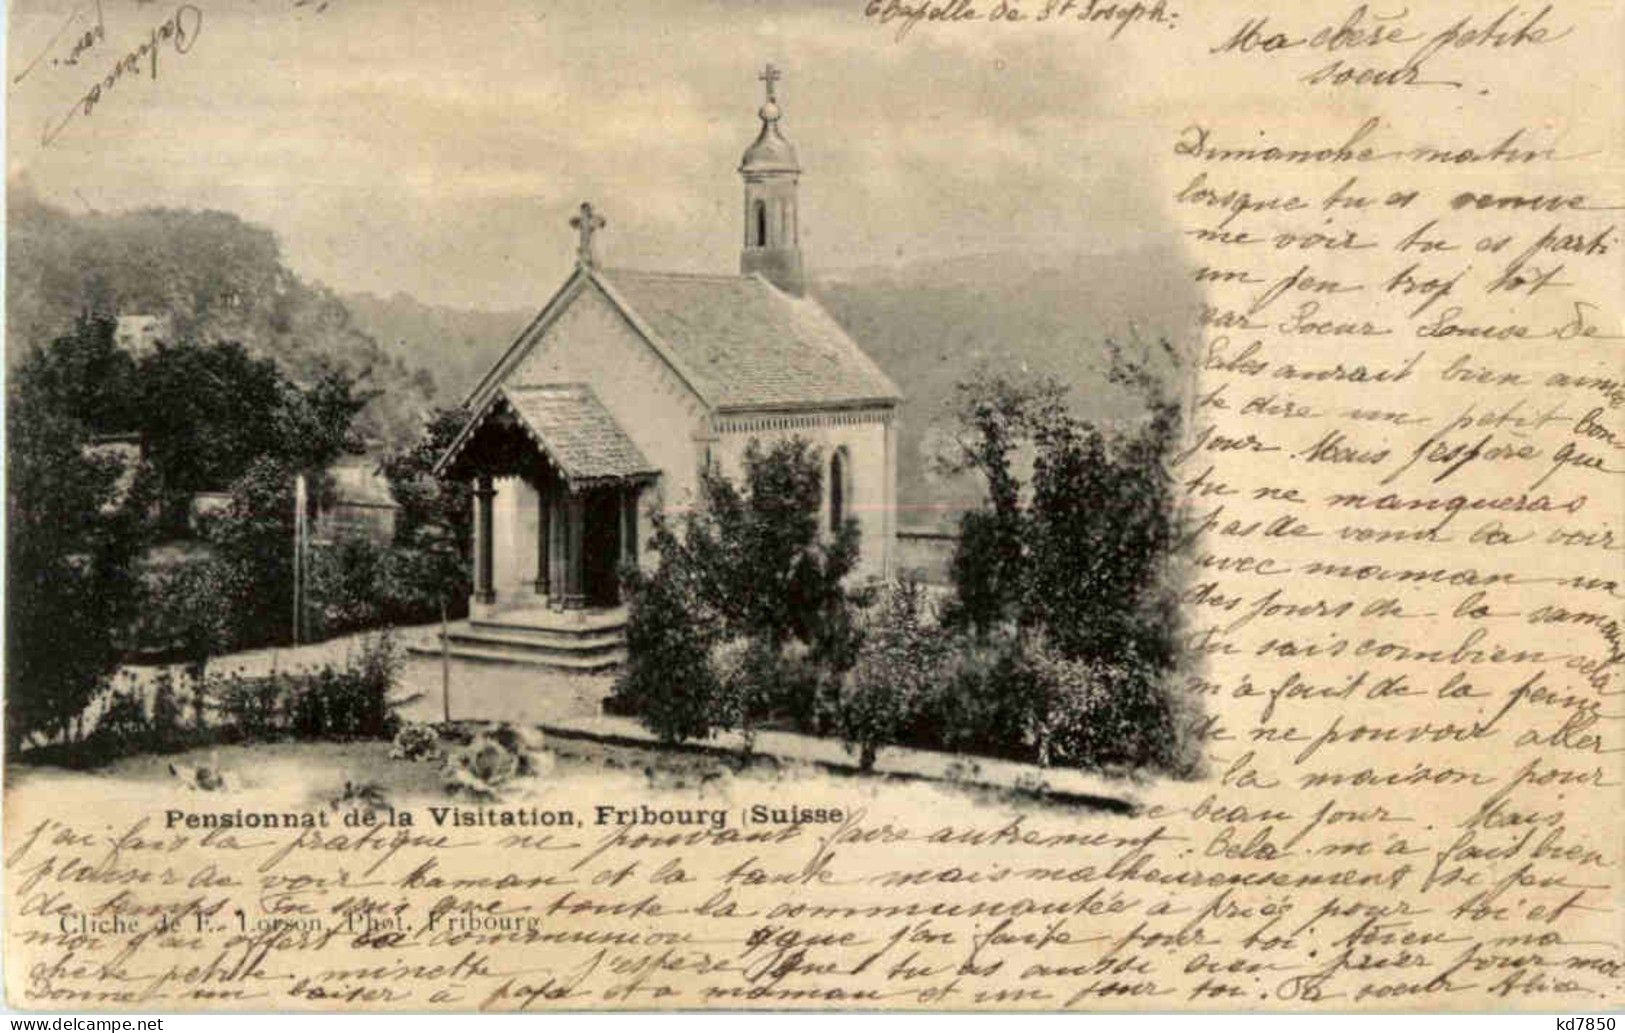 Chapelle de St Joseph:
Ma chère petite
soeur.
Dimanche matin
lorsque tu es venue
me voir tu es parti
un peu trop tôt
car Soeur Louise de
aurait bien aimée
te dire un petit bon
jour Mais j'espère que
tu ne manqueras
pas de venir la voir
avec maman un
des jours de la semaine
Tu sais combien cela
m'a fait de la peine
de ne pouvoir aller
la maison pour
ce beau jour. Mais
Pensionnat de la Visitation, Fribourg (Suisse)
j'ai fais la pratique ne pouvant faire autrement. Cela m'a fait bien
plaisir de voir Maman et la tante mais malheureusement si peu
de temps. Tu sais que toute la communautée a priés pour toi et
Cliché de F. Lorson, Phot. Fribourg
moi j'ai offert la communion que j'ai faite pour toi. Adieu ma
chère petite minette j'espère que tu as aussi bien prier pour moi
Donne un baiser à papa et a maman et un pour toi. Ta soeur Alice.
kd7850